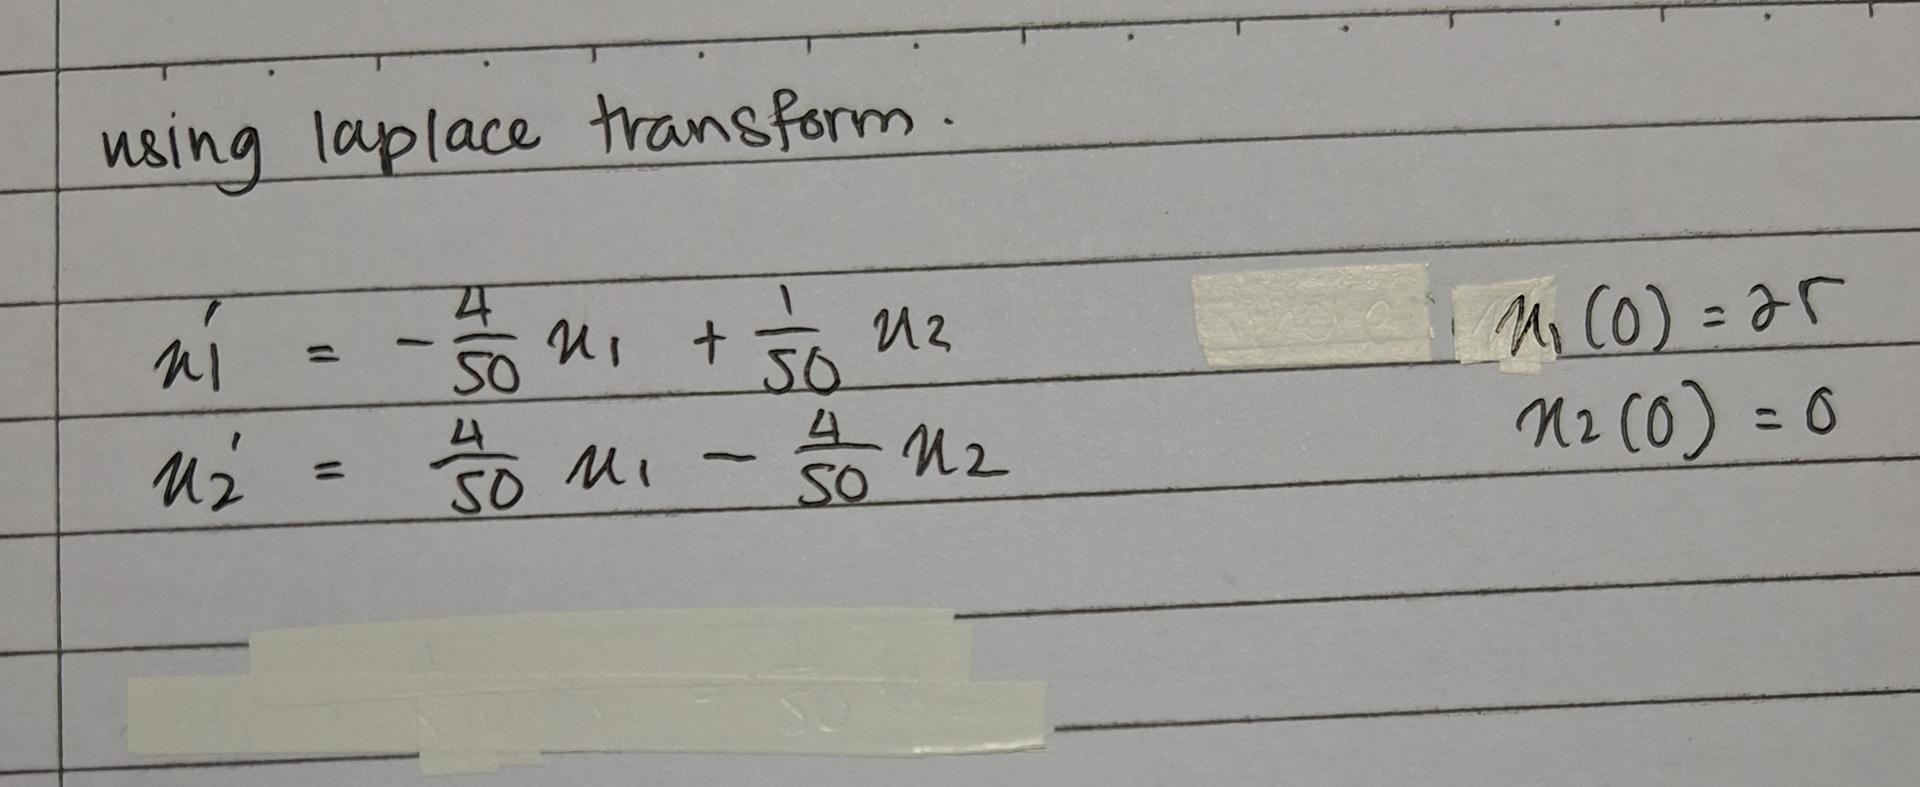 using laplace transform.
x1' = - 4/50 x1 + 1/50 x2 x1(0) = 25
x2' = 4/50 x1 - 4/50 x2 x2(0) = 0